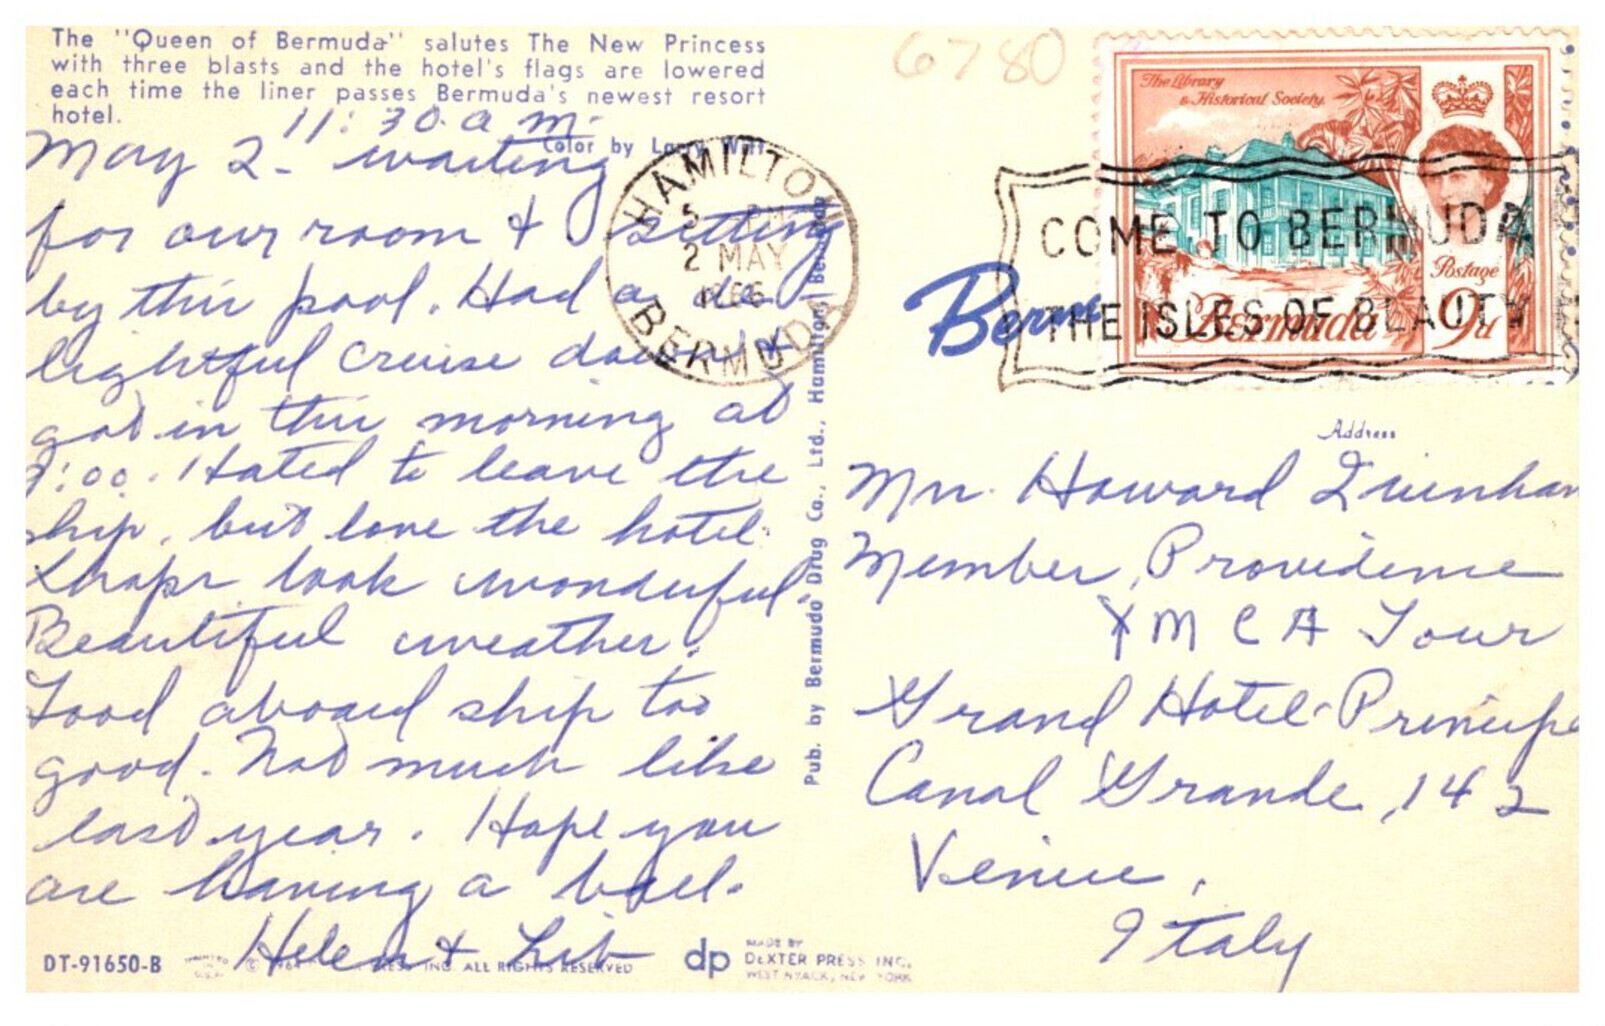 The "Queen of Bermuda" salutes The New Princess
with three blasts and the hotel's flags are lowered
each time the liner passes Bermuda's newest resort
hotel.
Color by Larry Witt
11:30 a.m.
May 2 - waiting
for our room & sitting
by this pool. Had a de-
lightful cruise down &
got in this morning at
9:00. Hated to leave the
ship, but love the hotel.
look wonderful.
Beautiful weather.
Food aboard ship too
good. Not much like
last year. Hope you
are having a ball.
Helen & Lib
DT-91650-B
INC. ALL RIGHTS RESERVED
dp
MADE BY
DEXTER PRESS INC.
WEST NYACK, NEW YORK
Pub. by Bermuda Drug Co., Ltd., Hamilton, Bermuda
6780
HAMILTON
5
2 MAY
1966
BERMUDA
COME TO BERMUDA
THE ISLES OF BEAUTY
The Library
& Historical Society.
Postage
Bermuda
9d
Address
Mr. Howard
Member, Providence
YMCA Tour
Grand Hotel Principe
Canal Grande, 142
Venice,
Italy